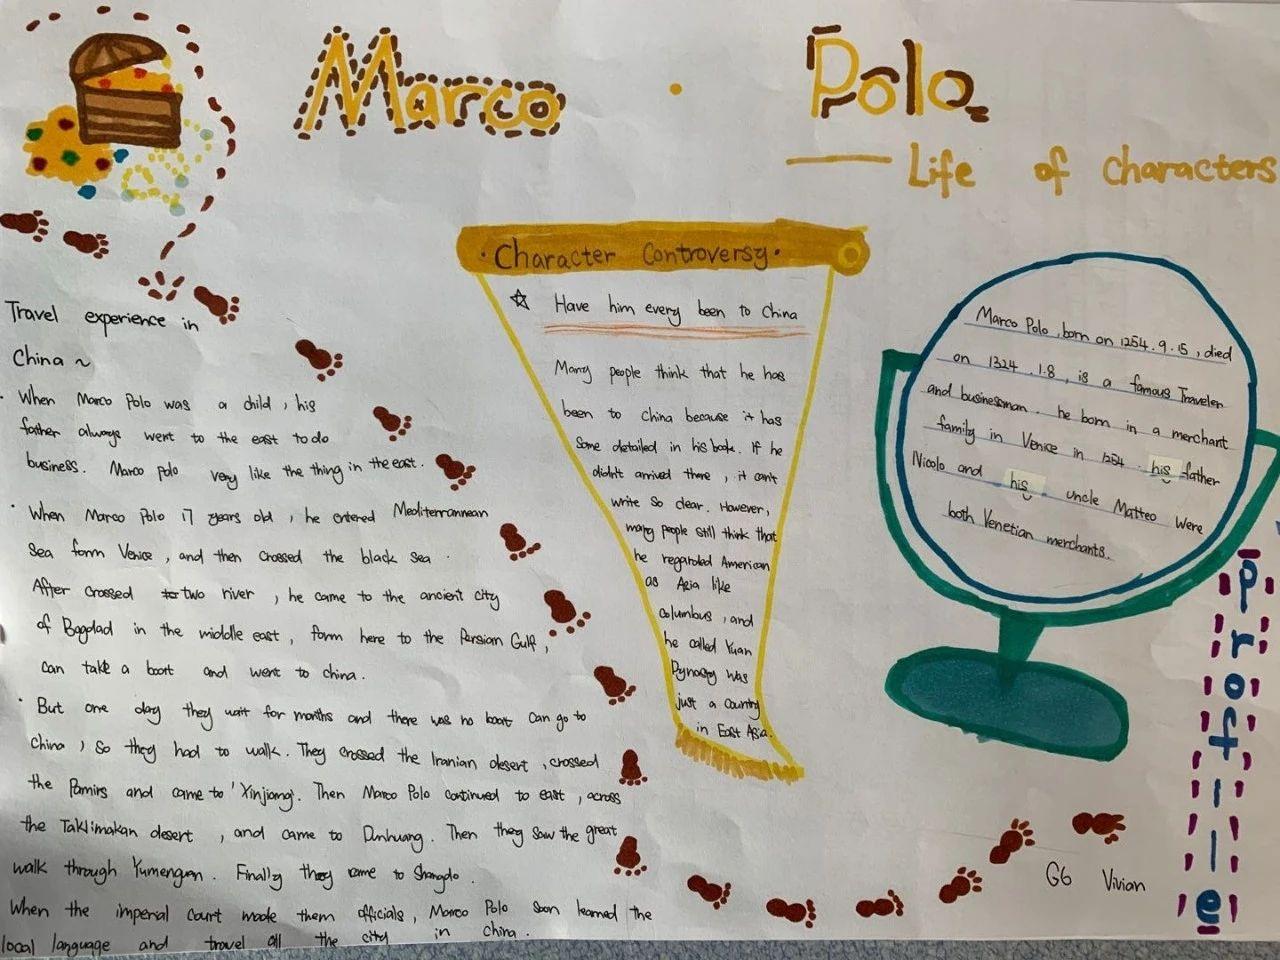 Marco · Polo
— Life of characters
Travel experience in
China ~
· When Marco Polo was a child, his
father always went to the east to do
business. Marco polo very like the thing in the east.
· When Marco Polo 17 years old, he entered Mediterrannean
Sea form Venice, and then crossed the black sea.
After crossed two river, he came to the ancient city
of Bagdad in the middle east, form here to the Persian Gulf,
can take a boat and went to china.
· But one day they wait for months and there was no boat can go to
China, so they had to walk. They crossed the Iranian desert, crossed
the Pamirs and came to 'Xinjiang'. Then Marco Polo continued to east, across
the Taklimakan desert, and came to Dunhuang. Then they saw the great
walk through Yumenguan. Finally they came to Shangdo.
When the imperial court made them officials, Marco Polo soon learned the
local language and travel all the city in china.
· Character Controversy ·
☆ Have him every been to China
Many people think that he has
been to china because it has
some detailed in his book. If he
didn't arrived there, it can't
write so clear. However,
many people still think that
he regarded American
as Asia like
columbus, and
he called Yuan
Dynasty was
just a country
in East Asia.
Marco Polo, born on 1254.9.15, died
on 1324.1.8, is a famous Traveler
and businessman. he born in a merchant
family in Venice in 1254. his father
Nicolo and his uncle Matteo were
both Venetian merchants.
Profile
G6 Vivian